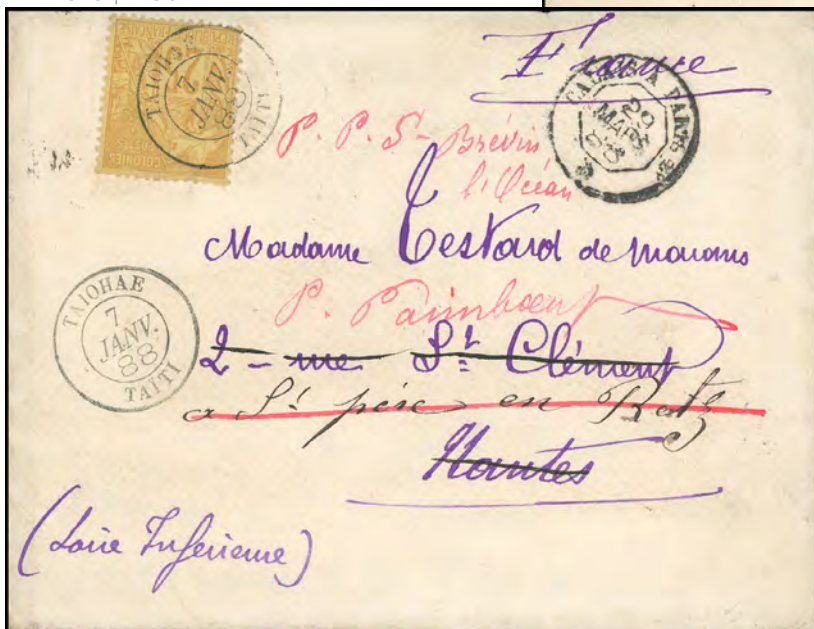 TAIOHAE
7
JANV.
88
TAITI
COLONIES
POSTES
France
CALAIS A PARIS
29
MARS
88
P. P. St-Brévin
l'Océan
Madame Testard de Marans
P. Paimboeuf
2 - rue St Clément
a St père en Retz
Nantes
(Loire Inférieure)
TAIOHAE
7
JANV.
88
TAITI